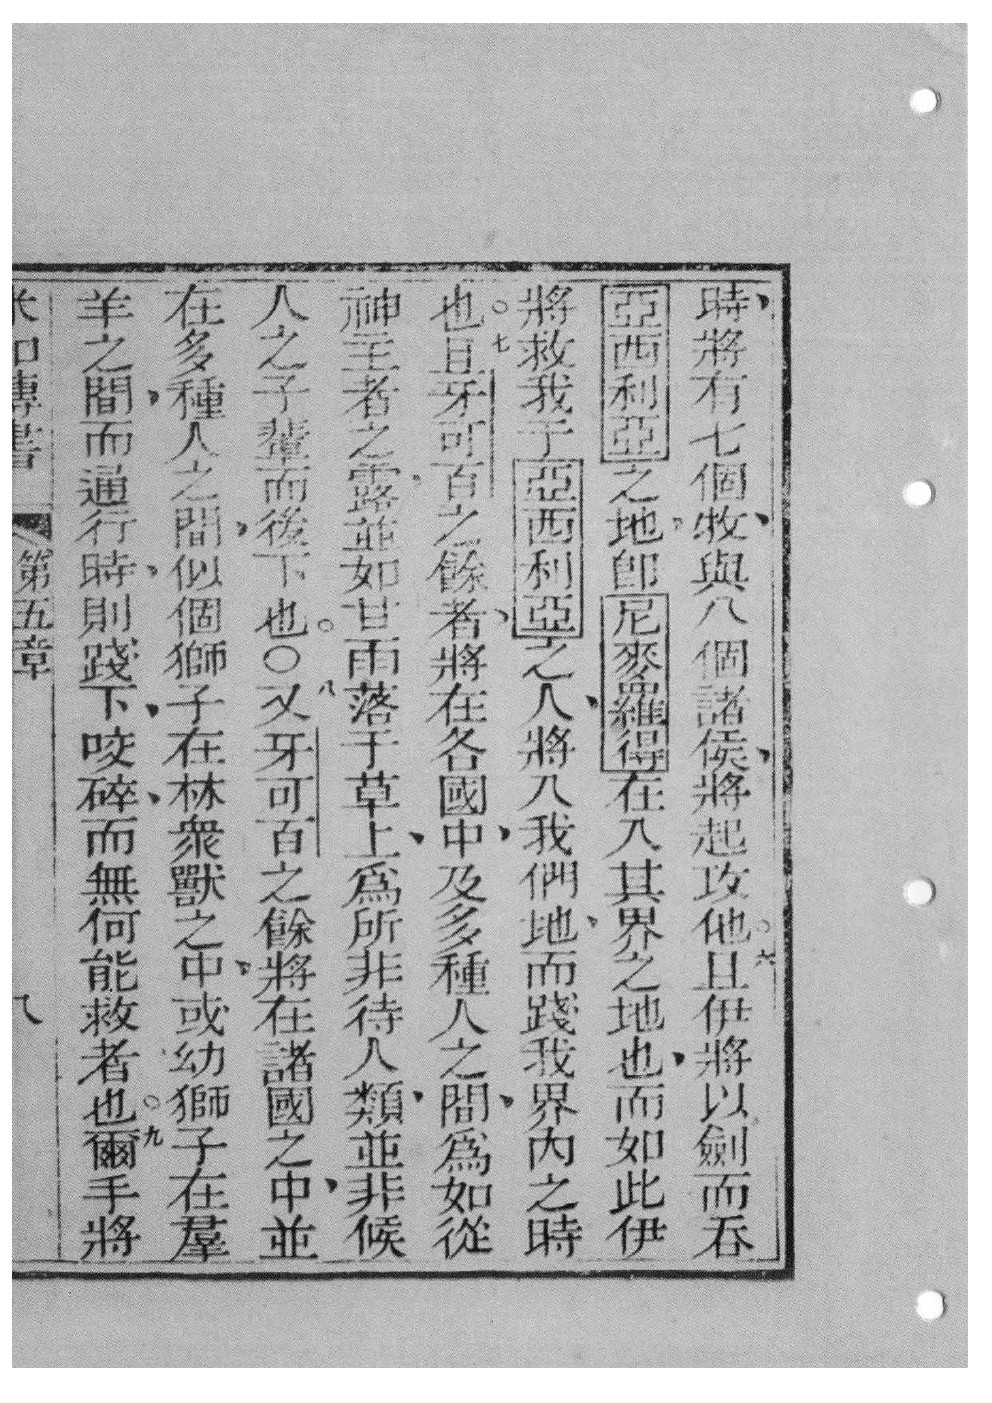 時、將有七個牧、與八個諸侯、將起攻他。六且伊將以劍而吞
亞西利亞之地、卽尼麥羅得在入其界之地也、而如此伊
將救我于亞西利亞之人、將入我們地、而踐我界內之時
也。七且牙可百之餘者、將在各國中、及多種人之間、爲如從
神主者之露、並如甘雨落于草上、爲所非待人類、並非候
人之子輩而後下也。○八又牙可百之餘將在諸國之中、並
在多種人之間、似個獅子在林衆獸之中、或幼獅子在羣
羊之間、而通行時、則踐下、咬碎、而無何能救者也。九爾手將
米加傳書 第五章 八